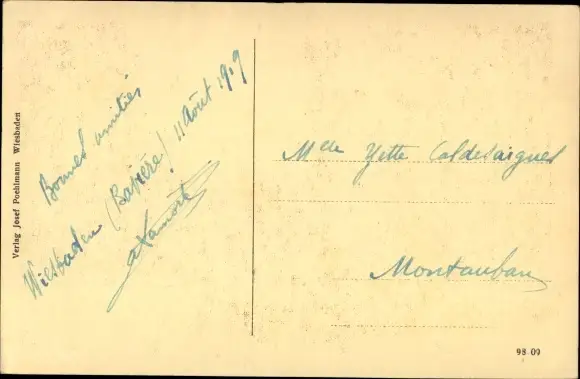 Verlag Josef Poehlmann Wiesbaden
Bonnes amitiés
Wiesbaden (Bavière) 11 Août 1919
Mlle Yette Caldesaigues
Montauban
98 09